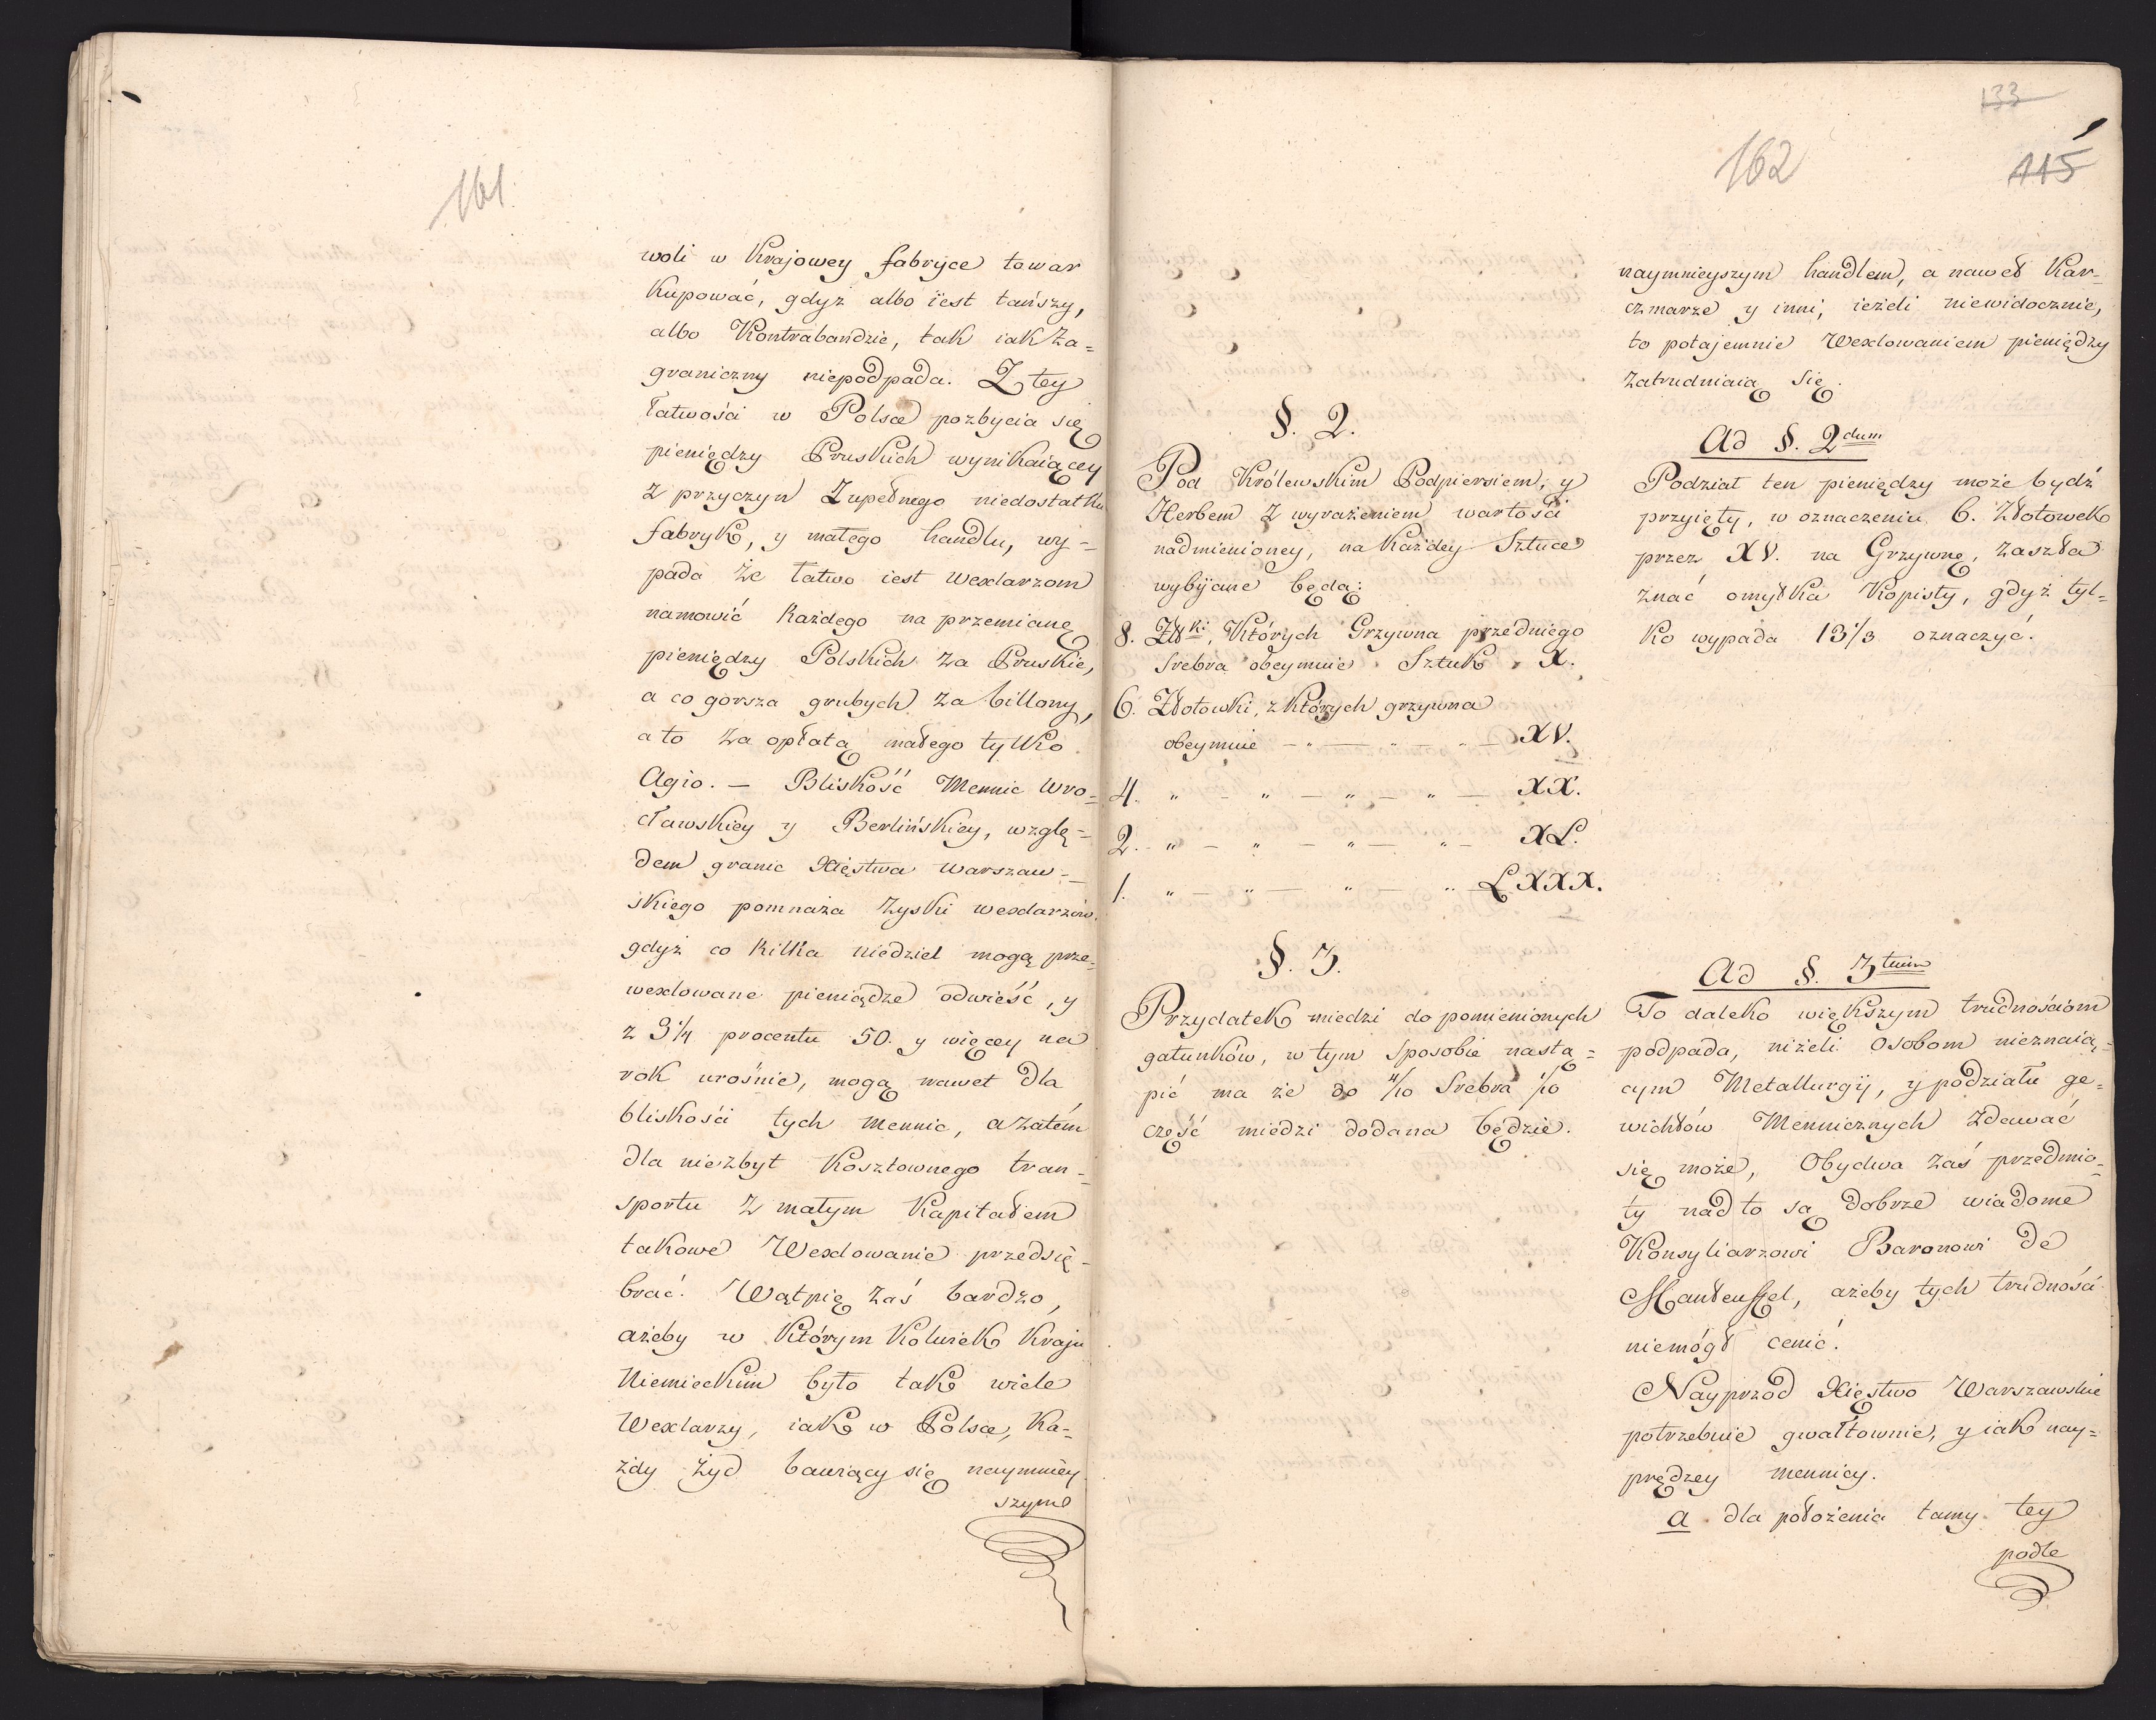 161.
woli w Krajowey fabryce towar
Kupować, gdyż albo iest tańszy,
albo Kontrabandzie, tak iak Za=
graniczny niepodpada. Z tey
łatwości w Polsce pozbycia się
pieniędzy Pruskich wynikaiącey
z przyczyn Zupełnego niedostatku
fabryk, y małego handlu, wy=
pada że łatwo iest wexlarzom
namowić Każdego na przemianę
pieniędzy Polskich za Pruskie,
a co gorsza grubych za billony,
a to za opłatą małego tylko
Agio. — Bliskość Mennic Wro=
cławskiey y Berlińskiey, wzglę=
dem granic Xięstwa Warszaw=
skiego pomnaża Zyski wexlarzow,
gdyż co kilka niedziel mogą prze=
wexlowane pieniądze odwieść, y
z 3 1/4 procentu 50. y więcey na
rok urośnie, mogą nawet dla
bliskości tych mennic, a zatém
dla niezbyt Kosztownego tran=
sportu z małym Kapitałem
takowe Wexlowanie przedsię=
brać. Wątpię zaś bardzo,
ażeby w Którym Kolwiek Kraju
Niemieckim było tak wiele
Wexlarzy, iak w Polsce, Ka=
żdy Żyd bawiący się naymniey
szym
133
162
115
§. 2.
Pod Królewskim Podpiersiem, y
Herbem z wyrażeniem wartości
nadmienioney, na Każdey Sztuce
wybijane będą:
8. Złki, Których Grzywna przedniego
Srebra obeymuie Sztuk X.
6. Złotowki, z Których grzywna
obeymuie — " — " — " — XV.
4. " — " — " — " — XX.
2. " — " — " — " — XL.
1. " — " — " — " LXXX.
§. 3.
Przydatek miedzi do pomienionych
gatunków, w tym sposobie nastą=
pić ma że do Srebra 1/10
część miedzi dodana będzie.
naymnieyszym handlem, a naweł Kar=
czmarze y inni, ieżeli niewidocznie,
to potajemnie Wexlowaniem pieniędzy
zatrudniaią Się.
Ad §. 2dum
Podział ten pieniędzy może bydź
przyięty, w oznaczeniu 6. Złotowek
przez XV. na Grzywnę, zaszła
znać omyłka Kopisty, gdyż tyl=
ko wypada 13 1/3 oznaczyć.
Ad §. 3tium
To daleko większym trudnościom
podpada, niżeli Osobom nieznaią=
cym Metallurgij, y podziału ge=
wichtów Mennicznych zdawać
się może, Obydwa zaś przedmio=
ty nad to są dobrze wiadome
Konsyliarzowi Baronowi de
Manteuffel, ażeby tych trudności
niemógł cenić.
Nayprzod Xięstwo Warszawskie
potrzebuie gwałtownie, y iak nay=
prędzey mennicy.
a dla położenia tamy tey
podle